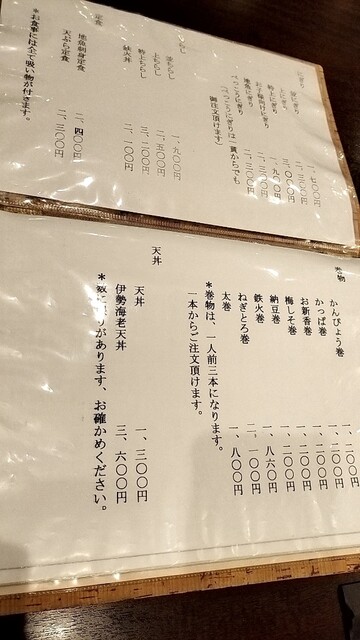 にぎり
上にぎり 二、三〇〇円
特上にぎり 三、〇〇〇円
お子様向けにぎり 一、九〇〇円
地魚にぎり
べっこうにぎり 二、三〇〇円
(べっこうにぎりは一貫からでも
御注文頂けます)
らし
ちらし 一、九〇〇円
上ちらし 二、五〇〇円
特上ちらし 三、二〇〇円
鉄火丼 二、一〇〇円
定食
地魚刺身定食 二、四〇〇円
天ぷら定食 二、三〇〇円
*お食事には全て吸い物が付きます。
巻物
かんぴょう巻
かっぱ巻 一、二〇〇円
お新香巻 一、二〇〇円
梅しそ巻 一、二〇〇円
納豆巻 一、二〇〇円
鉄火巻 一、八六〇円
ねぎとろ巻 二、一〇〇円
太巻 一、八〇〇円
*巻物は、一人前三本になります。
一本からご注文頂けます。
天丼
天丼 一、三〇〇円
伊勢海老天丼 三、六〇〇円
*数に限りがあります、お確かめください。